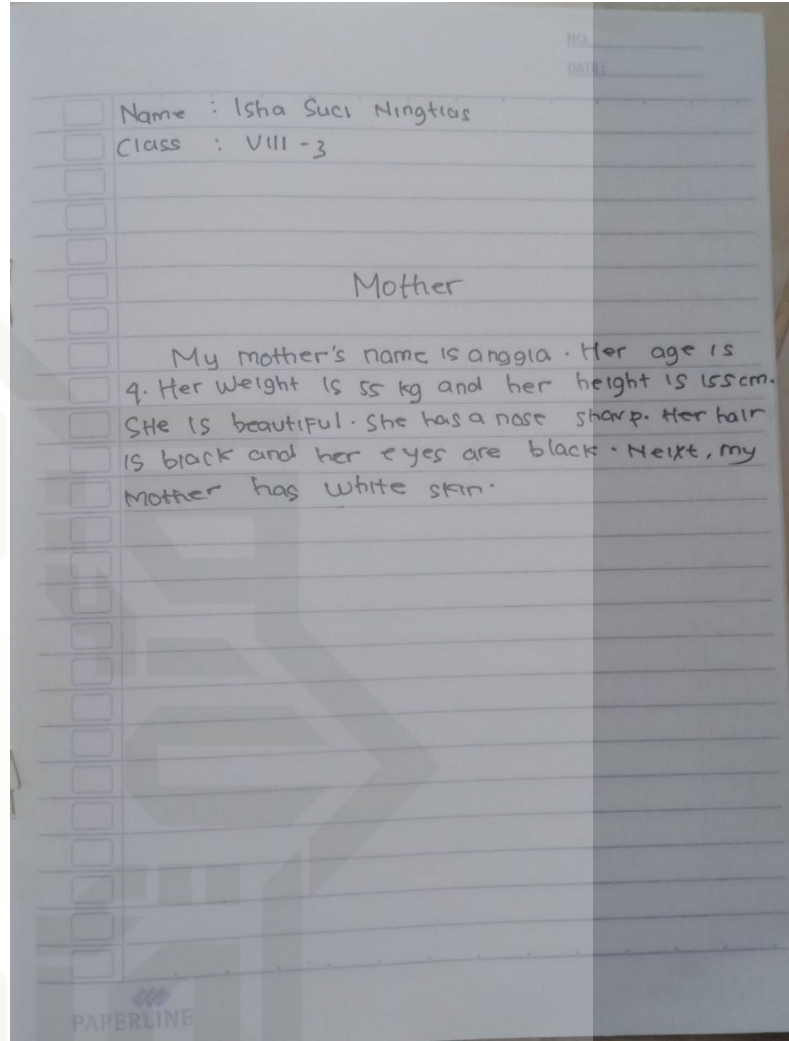 NO.
DATE:
Name : Isha Suci Ningtias
Class : VIII - 3
Mother
My mother's name is anggia. Her age is
4. Her weight is 55 kg and her height is 155 cm.
SHe is beautiful. She has a nose sharp. Her hair
is black and her eyes are black. Neixt, my
mother has white skin.
PAPERLINE